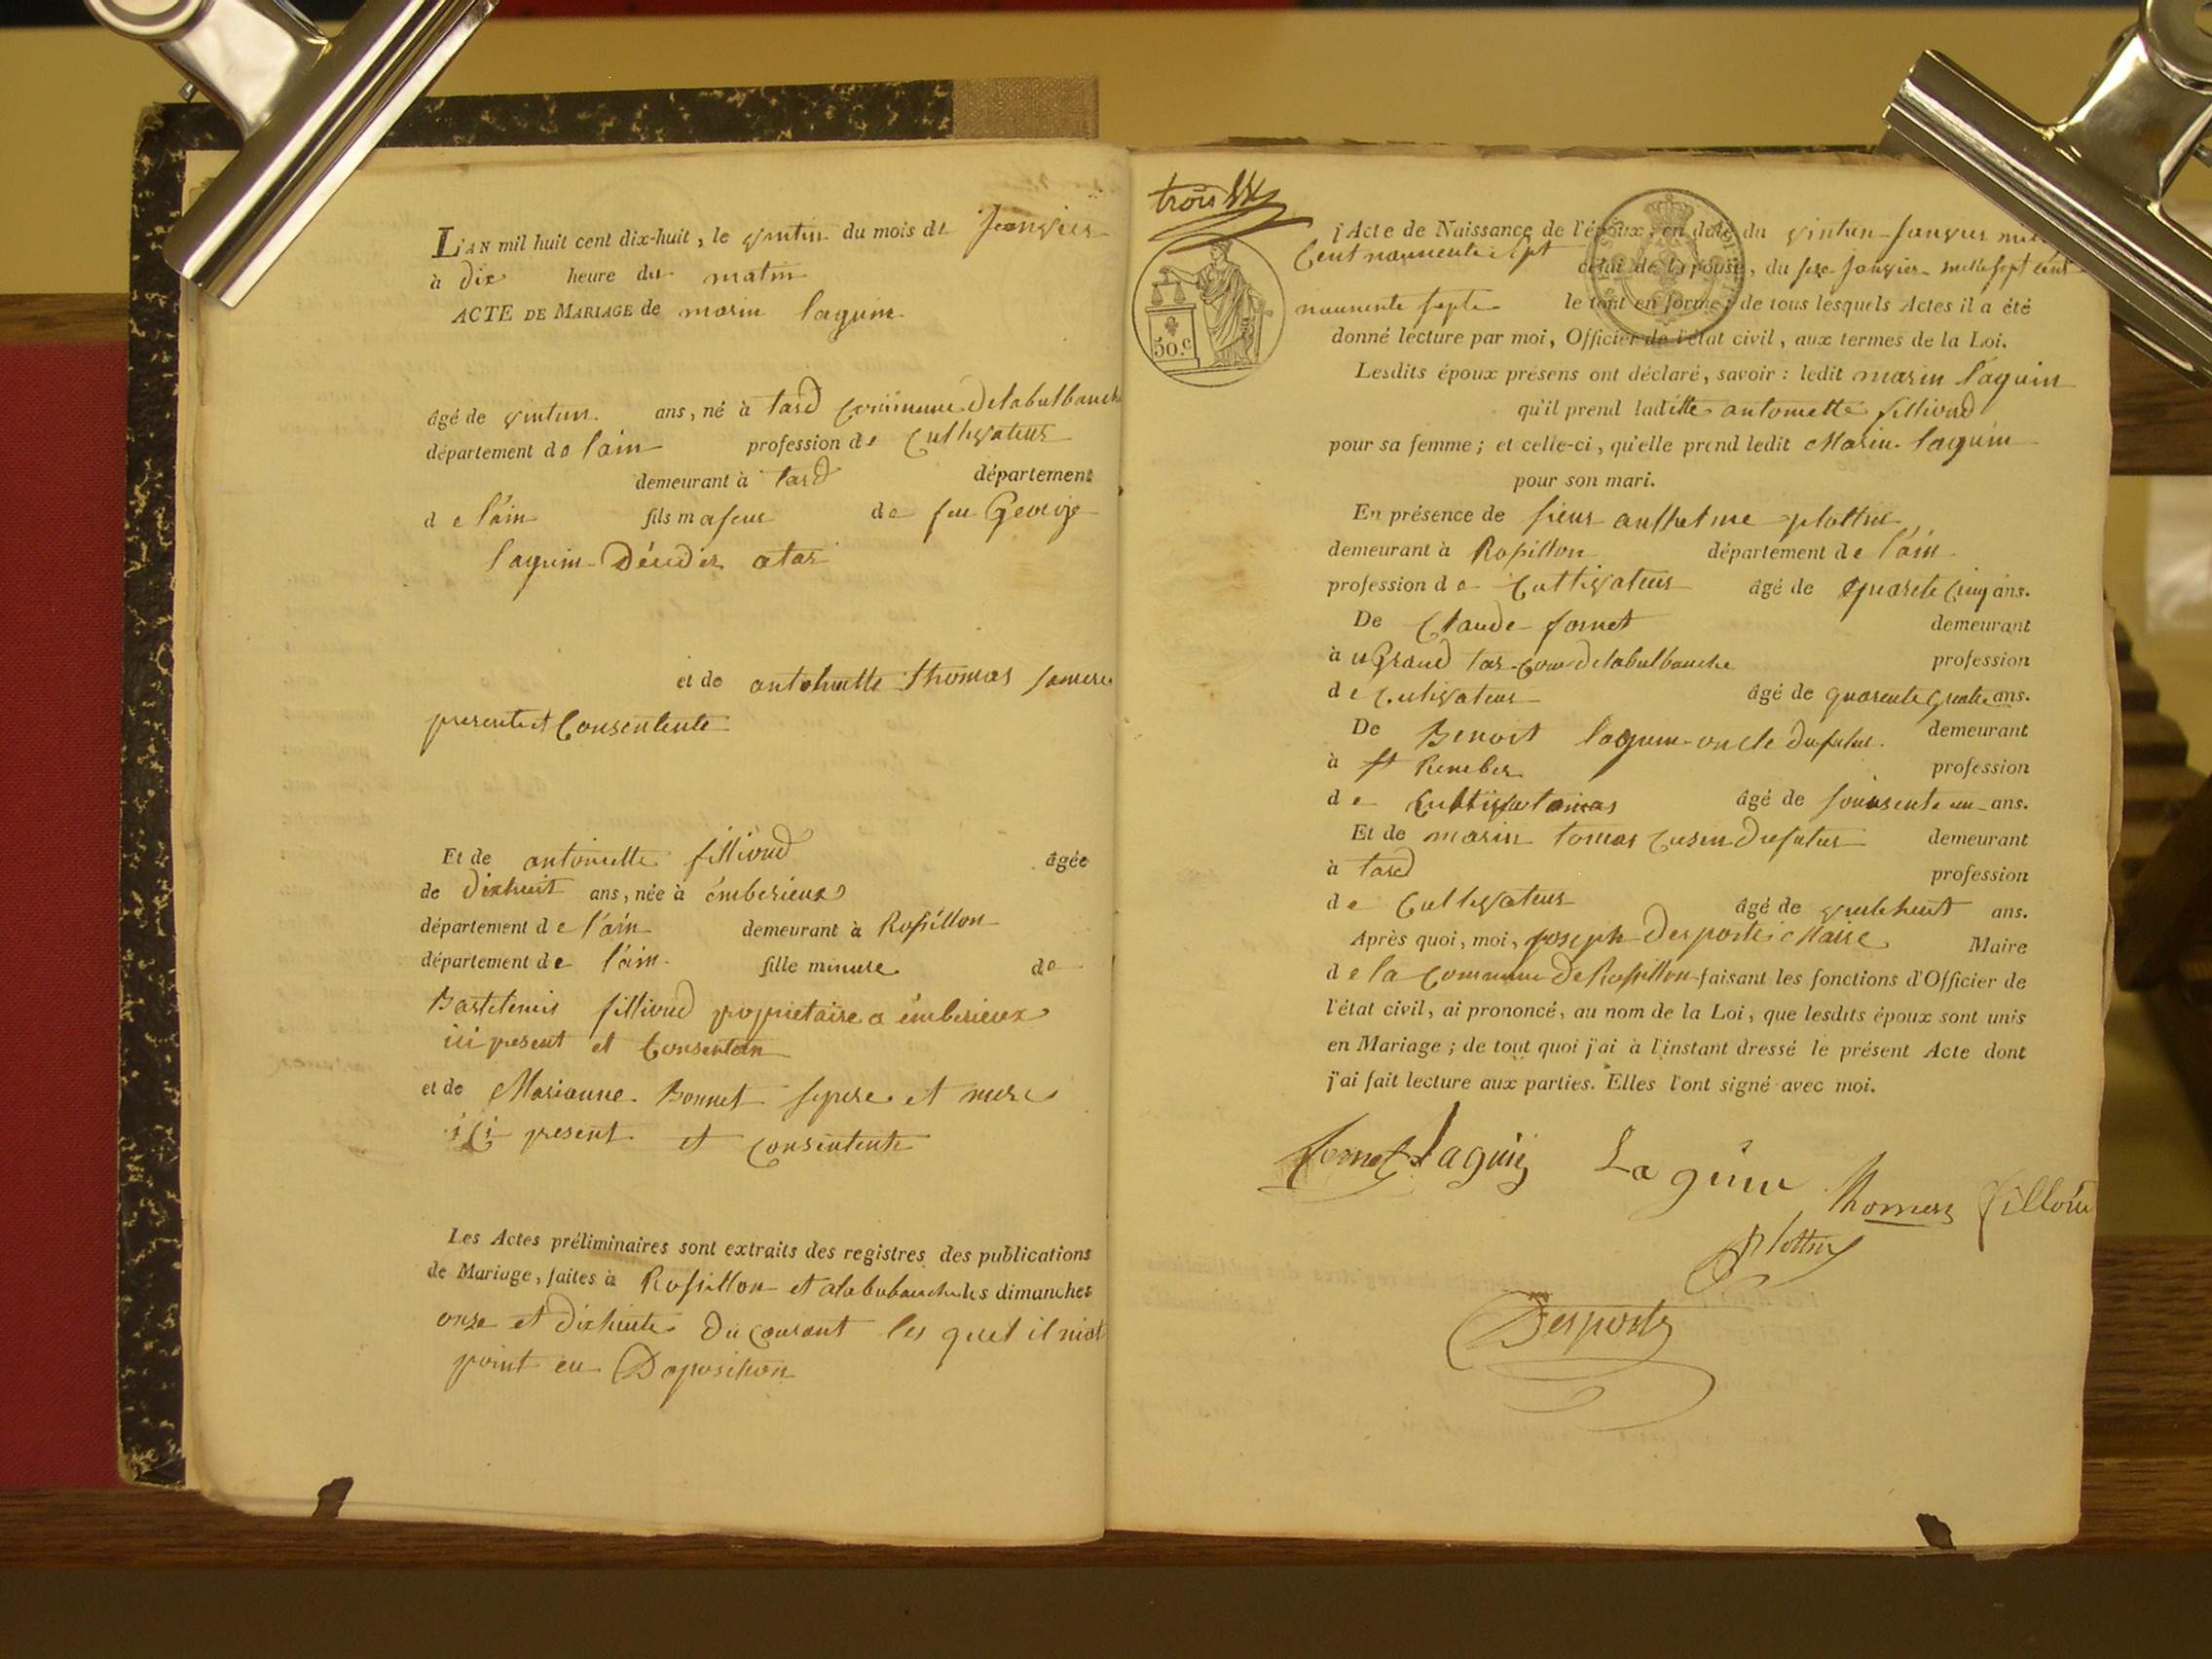 L'AN mil huit cent dix-huit, le vintun du mois de Janvier
à dix heure du matin
ACTE DE MARIAGE de marin laguin
âgé de vintun ans, né à tard commune delabulbanche
département de lain profession de Cultivateur
demeurant à tard département
de l'ain fils majeur de feu George
laguin Décédér atar
et de antoinette thomas samere
presentet Consentente
Et de antoinette fillioud âgée
de dixhuit ans, née à émberieux
département de l'ain demeurant à Rossillon
département de l'ain fille mineure de
Bartelemis fillioud propriétaire a émberieux
ici present et Consentan
et de Marianne Bonnet sepere et mere
ici present et consentente
Les Actes préliminaires sont extraits des registres des publications
de Mariage, faites à Rossillon et alabubanche les dimanches
onze et dixhuite du courant les quel il niat
point eu Doposition
trois
l'Acte de Naissance de l'époux, en date du vintun Janvier mil
Cent nonnente sept celui de l'épouse, du seze Janvier mille sept cent
nonnente septe le tout en forme; de tous lesquels Actes il a été
50.c donné lecture par moi, Officier de l'état civil, aux termes de la Loi.
Lesdits époux présens ont déclaré, savoir: ledit marin laguin
qu'il prend laditte antoinette fillioud
pour sa femme; et celle-ci, qu'elle prend ledit Marin laguin
pour son mari.
En présence de sieur anthelme plottin,
demeurant à Rossillon département de l'ain
profession de Cultivateur âgé de quarete Cinq ans.
De Claude fornet demeurant
à Grand tar delabulbanche profession
de Cultivateur âgé de quarente quatre ans.
De Benoit laguin oncle dufutur demeurant
à st Rember profession
de âgé de soixsente un ans.
Et de marin tomas cusin dufutur demeurant
à tard profession
de Cultivateur âgé de vintehuit ans.
Après quoi, moi, joseph Desportes Maire Maire
de la Commune de Rossillon faisant les fonctions d'Officier de
l'état civil, ai prononcé, au nom de la Loi, que lesdits époux sont unis
en Mariage; de tout quoi j'ai à l'instant dressé le présent Acte dont
j'ai fait lecture aux parties. Elles l'ont signé avec moi.
fornet laguin Laguin thomas filloud
Plottin
Desportes